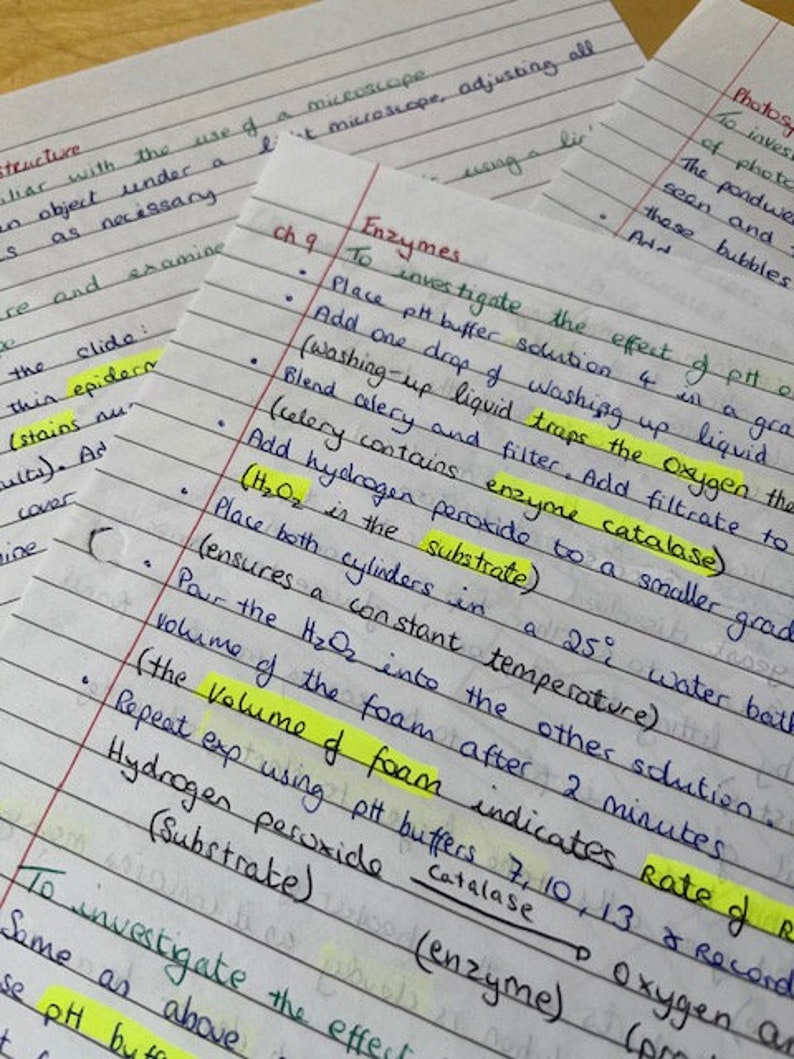 structure
liar with the use of a microscope
an object under a light microscope, adjusting all
s as necessary
using a
re and examine
the slide:
thin epiderm
(stains
ults). Ad
cover
ine
Photosy
To inves
of photo
The pondwe
seen and
these bubbles
Add
ch 9 Enzymes
To investigate the effect of pH o
• Place pH buffer solution 4 in a gra
• Add one drop of washing up liquid
(washing-up liquid traps the oxygen the
• Blend celery and filter. Add filtrate to
(celery contains enzyme catalase)
• Add hydrogen peroxide to a smaller grad
(H₂O₂ is the substrate)
• Place both cylinders in a 25° water bath
(ensures a constant temperature)
• Pour the H₂O₂ into the other solution.
volume of the foam after 2 minutes
(the volume of foam indicates Rate of R
• Repeat exp using pH buffers 7, 10, 13 & Record
Hydrogen peroxide catalase → Oxygen an
(Substrate) (enzyme) (pro
To investigate the effect
Same as above
se pH buffe